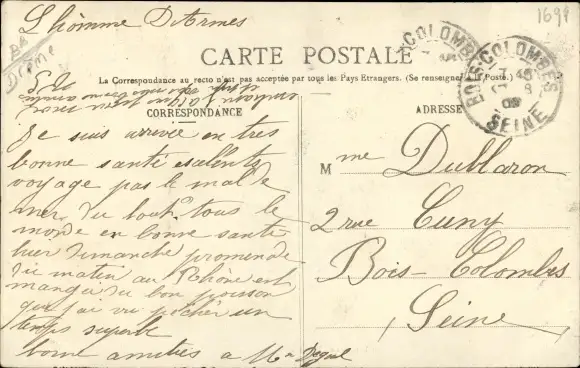 L'homme D'Armes
1698
Drôme
COLOMBES
BOIS-COLOMBES
7 45
17 - 8
09
SEINE
CARTE POSTALE
La Correspondance au recto n'est pas acceptée par tous les Pays Etrangers. (Se renseigner à la Poste.)
CORRESPONDANCE
ADRESSE
Je suis arrivée en tres
bonne santé esalents
voyage pas le mal de
mer du tout tous le
monde en bonne santé
hier Dimanche promenade
du matin au Rhône est
mangé du bon poisson
que j'ai vu pécher un
temps superbe
bonne amitiés a M
Mme Dublaron
2 rue Cuny
Bois-Colombes
Seine